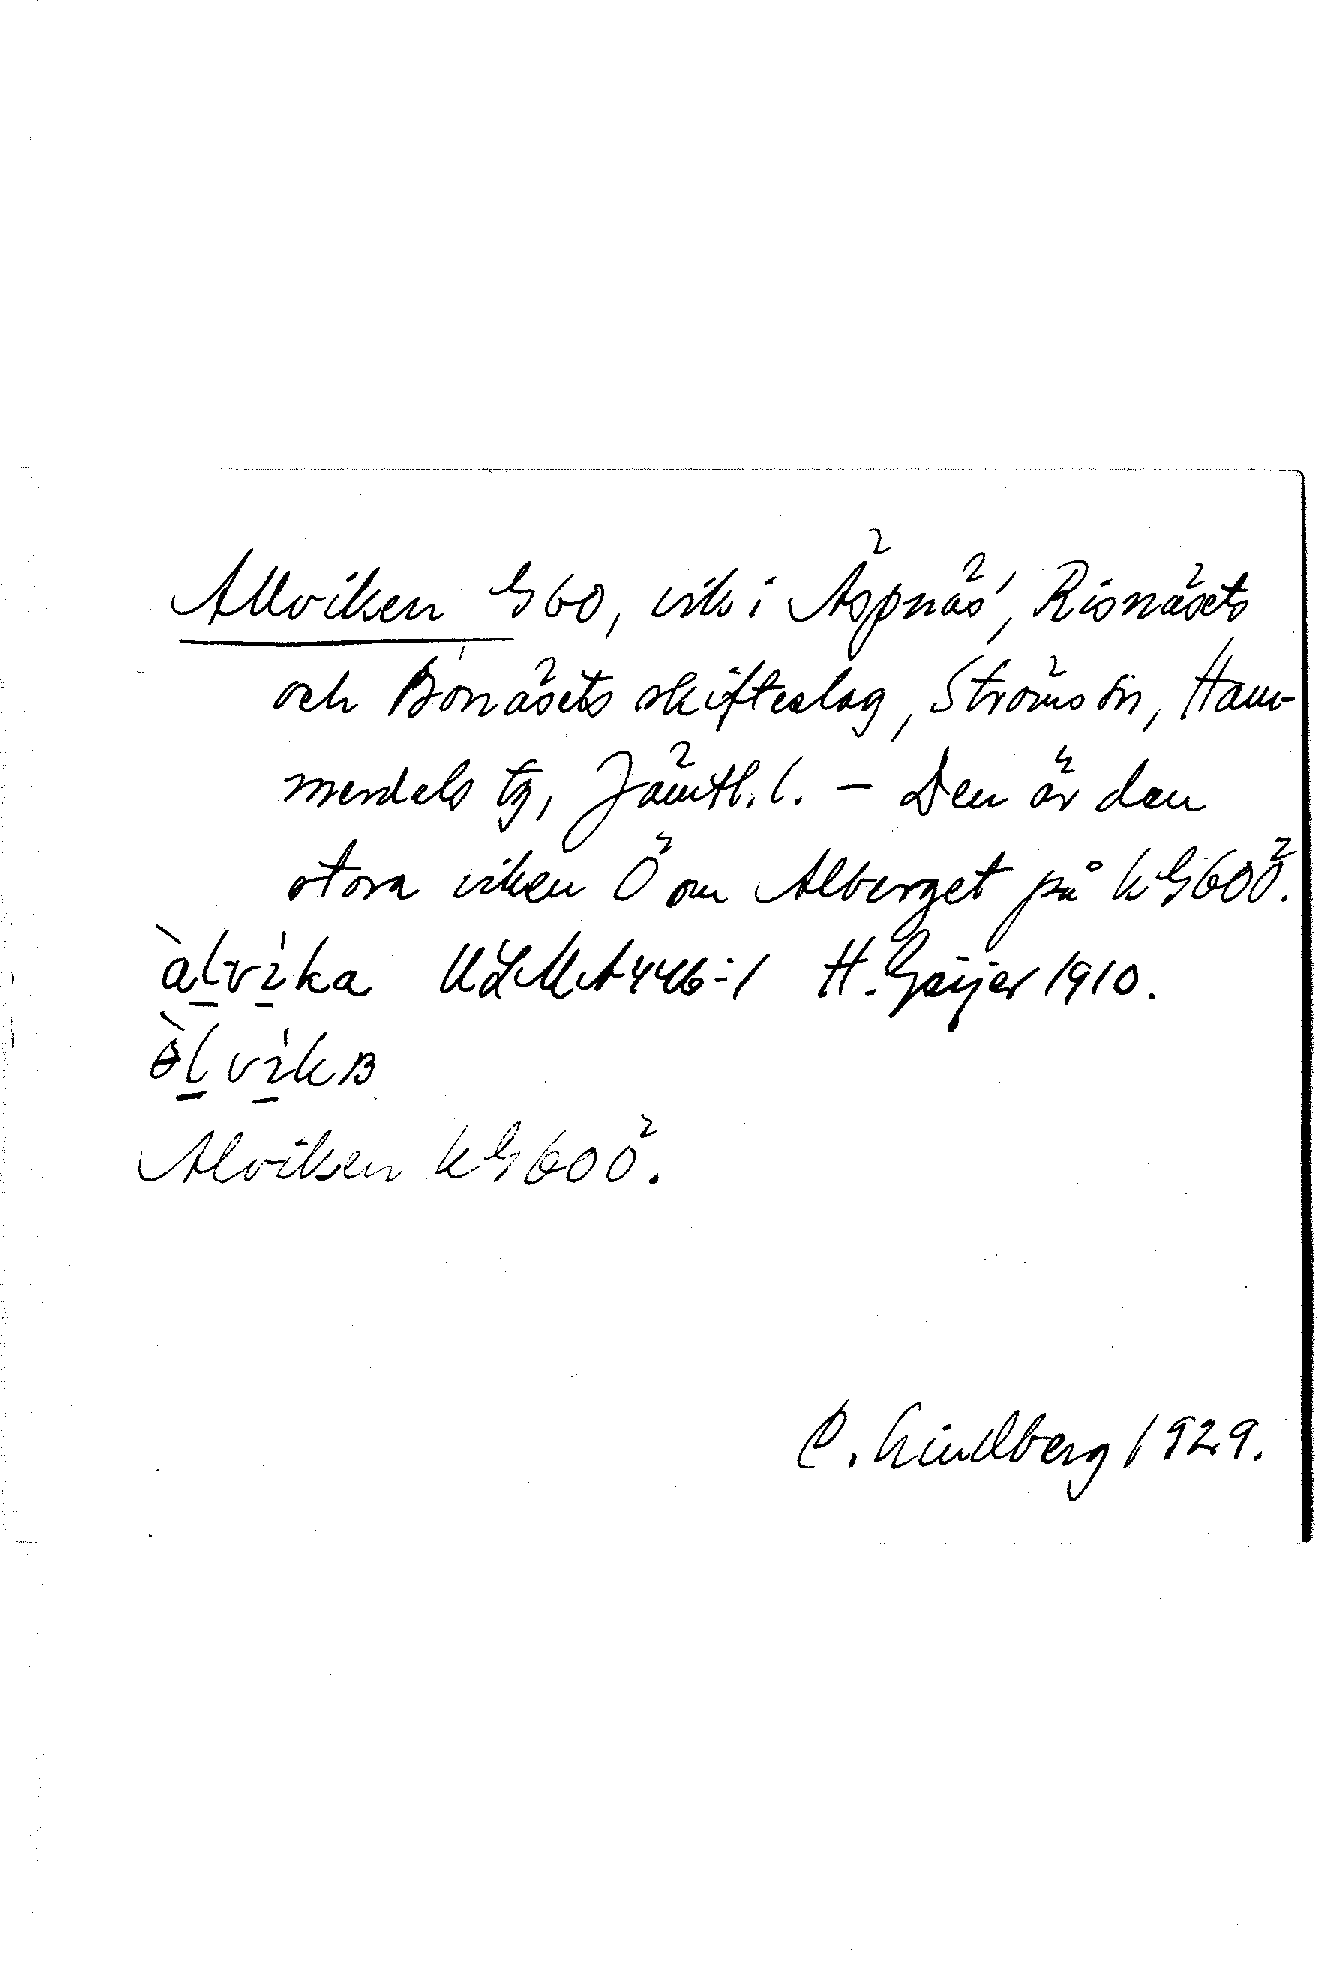 Allviken G60, vik i Äspnäs, Risnäsets
och Bonäsets skifteslag, Ströms sn, Ham-
merdals tg, Jämtl. l. – Den är den
stora viken Ö om Alberget på kG60Ö.
àlvìka ULMA 446:1 H. Geijer 1910.
Alviken kG60Ö.
C. Lindberg 1929.